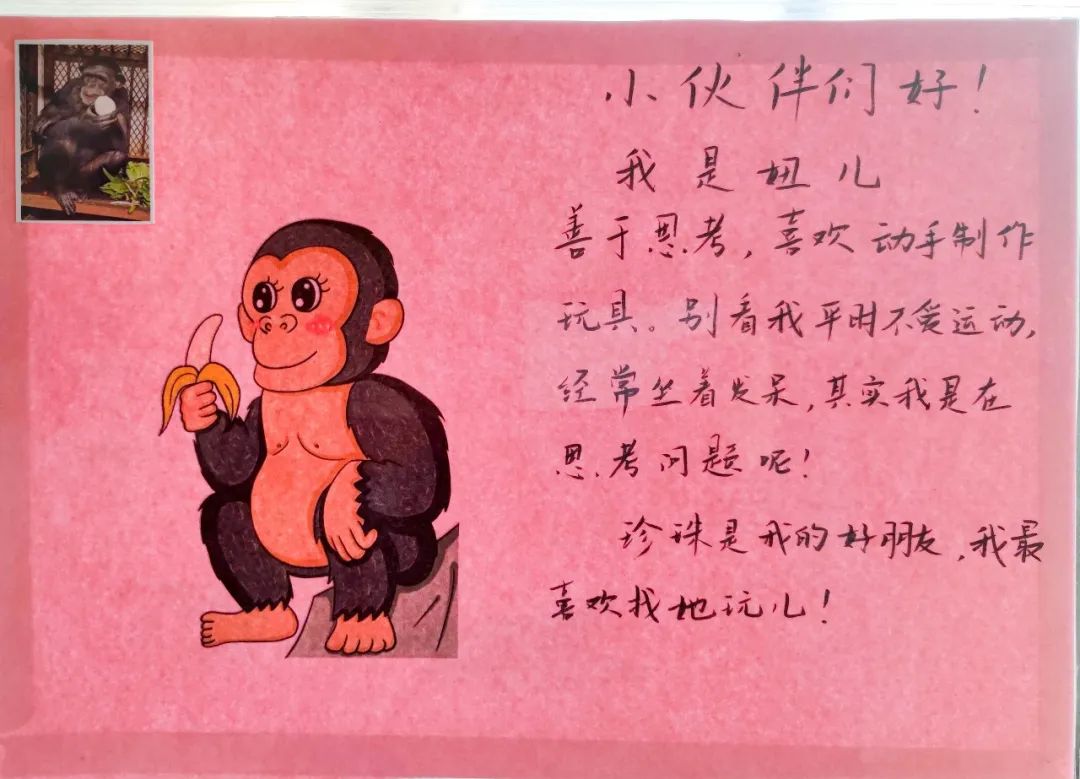 小伙伴们好！
我是妞儿
善于思考，喜欢动手制作
玩具。别看我平时不爱运动，
经常坐着发呆，其实我是在
思考问题呢！
珍珠是我的好朋友，我最
喜欢找她玩儿！